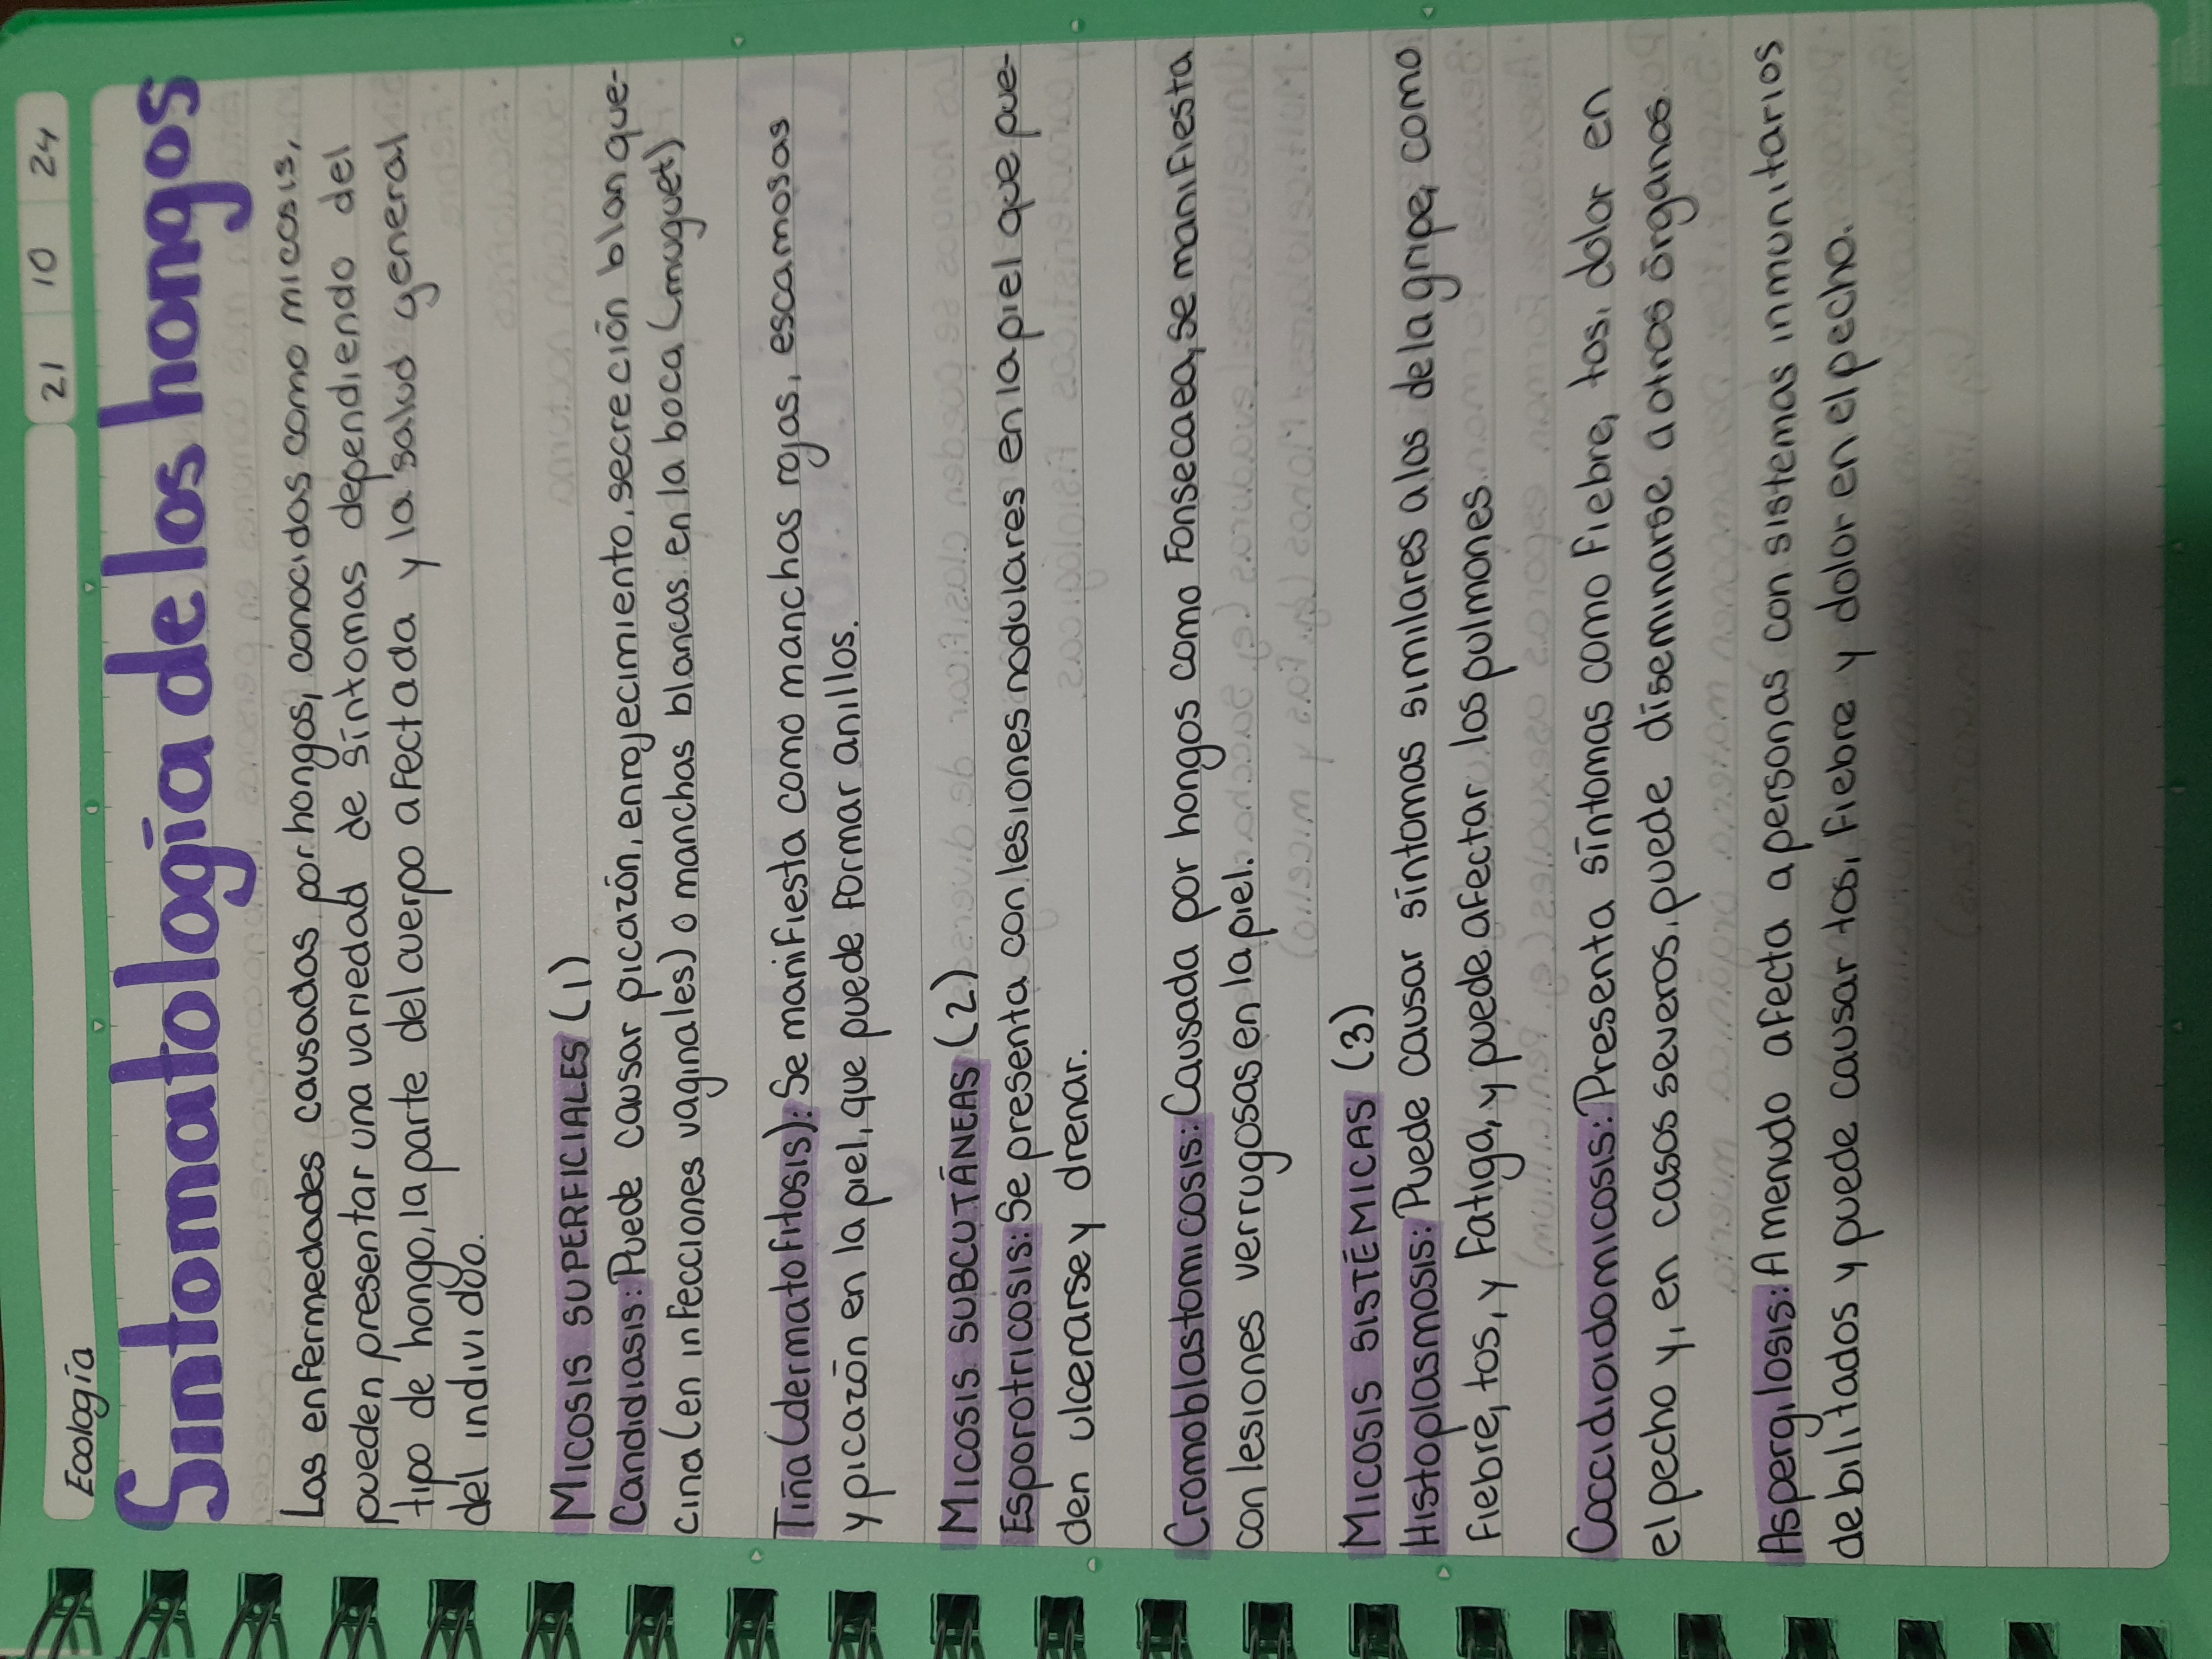 Ecología
21 10 24
Sintomatología de los hongos
Las enfermedades causadas por hongos, conocidas como micosis,
pueden presentar una variedad de síntomas dependiendo del
tipo de hongo, la parte del cuerpo afectada y la salud general
del individuo.
MICOSIS SUPERFICIALES (1)
Candidiasis: Puede causar picazón, enrojecimiento, secreción blanque-
cina (en infecciones vaginales) o manchas blancas en la boca (muguet)
Tiña (dermatofitosis): Se manifiesta como manchas rojas, escamosas
y picazón en la piel, que puede formar anillos.
MICOSIS SUBCUTÁNEAS (2)
Esporotricosis: Se presenta con lesiones nodulares en la piel que pue-
den ulcerarse y drenar.
Cromoblastomicosis: Causada por hongos como Fonsecaea, se manifiesta
con lesiones verrugosas en la piel.
MICOSIS SISTÉMICAS (3)
Histoplasmosis: Puede causar síntomas similares a los de la gripe, como
fiebre, tos, y fatiga, y puede afectar los pulmones.
Coccidioidomicosis: Presenta síntomas como fiebre, tos, dolor en
el pecho y, en casos severos, puede diseminarse a otros órganos.
Aspergilosis: A menudo afecta a personas con sistemas inmunitarios
debilitados y puede causar tos, fiebre y dolor en el pecho.